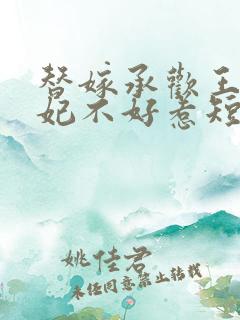 替嫁承欢王
妃不好惹短
姚佳君
未经同意禁止转载